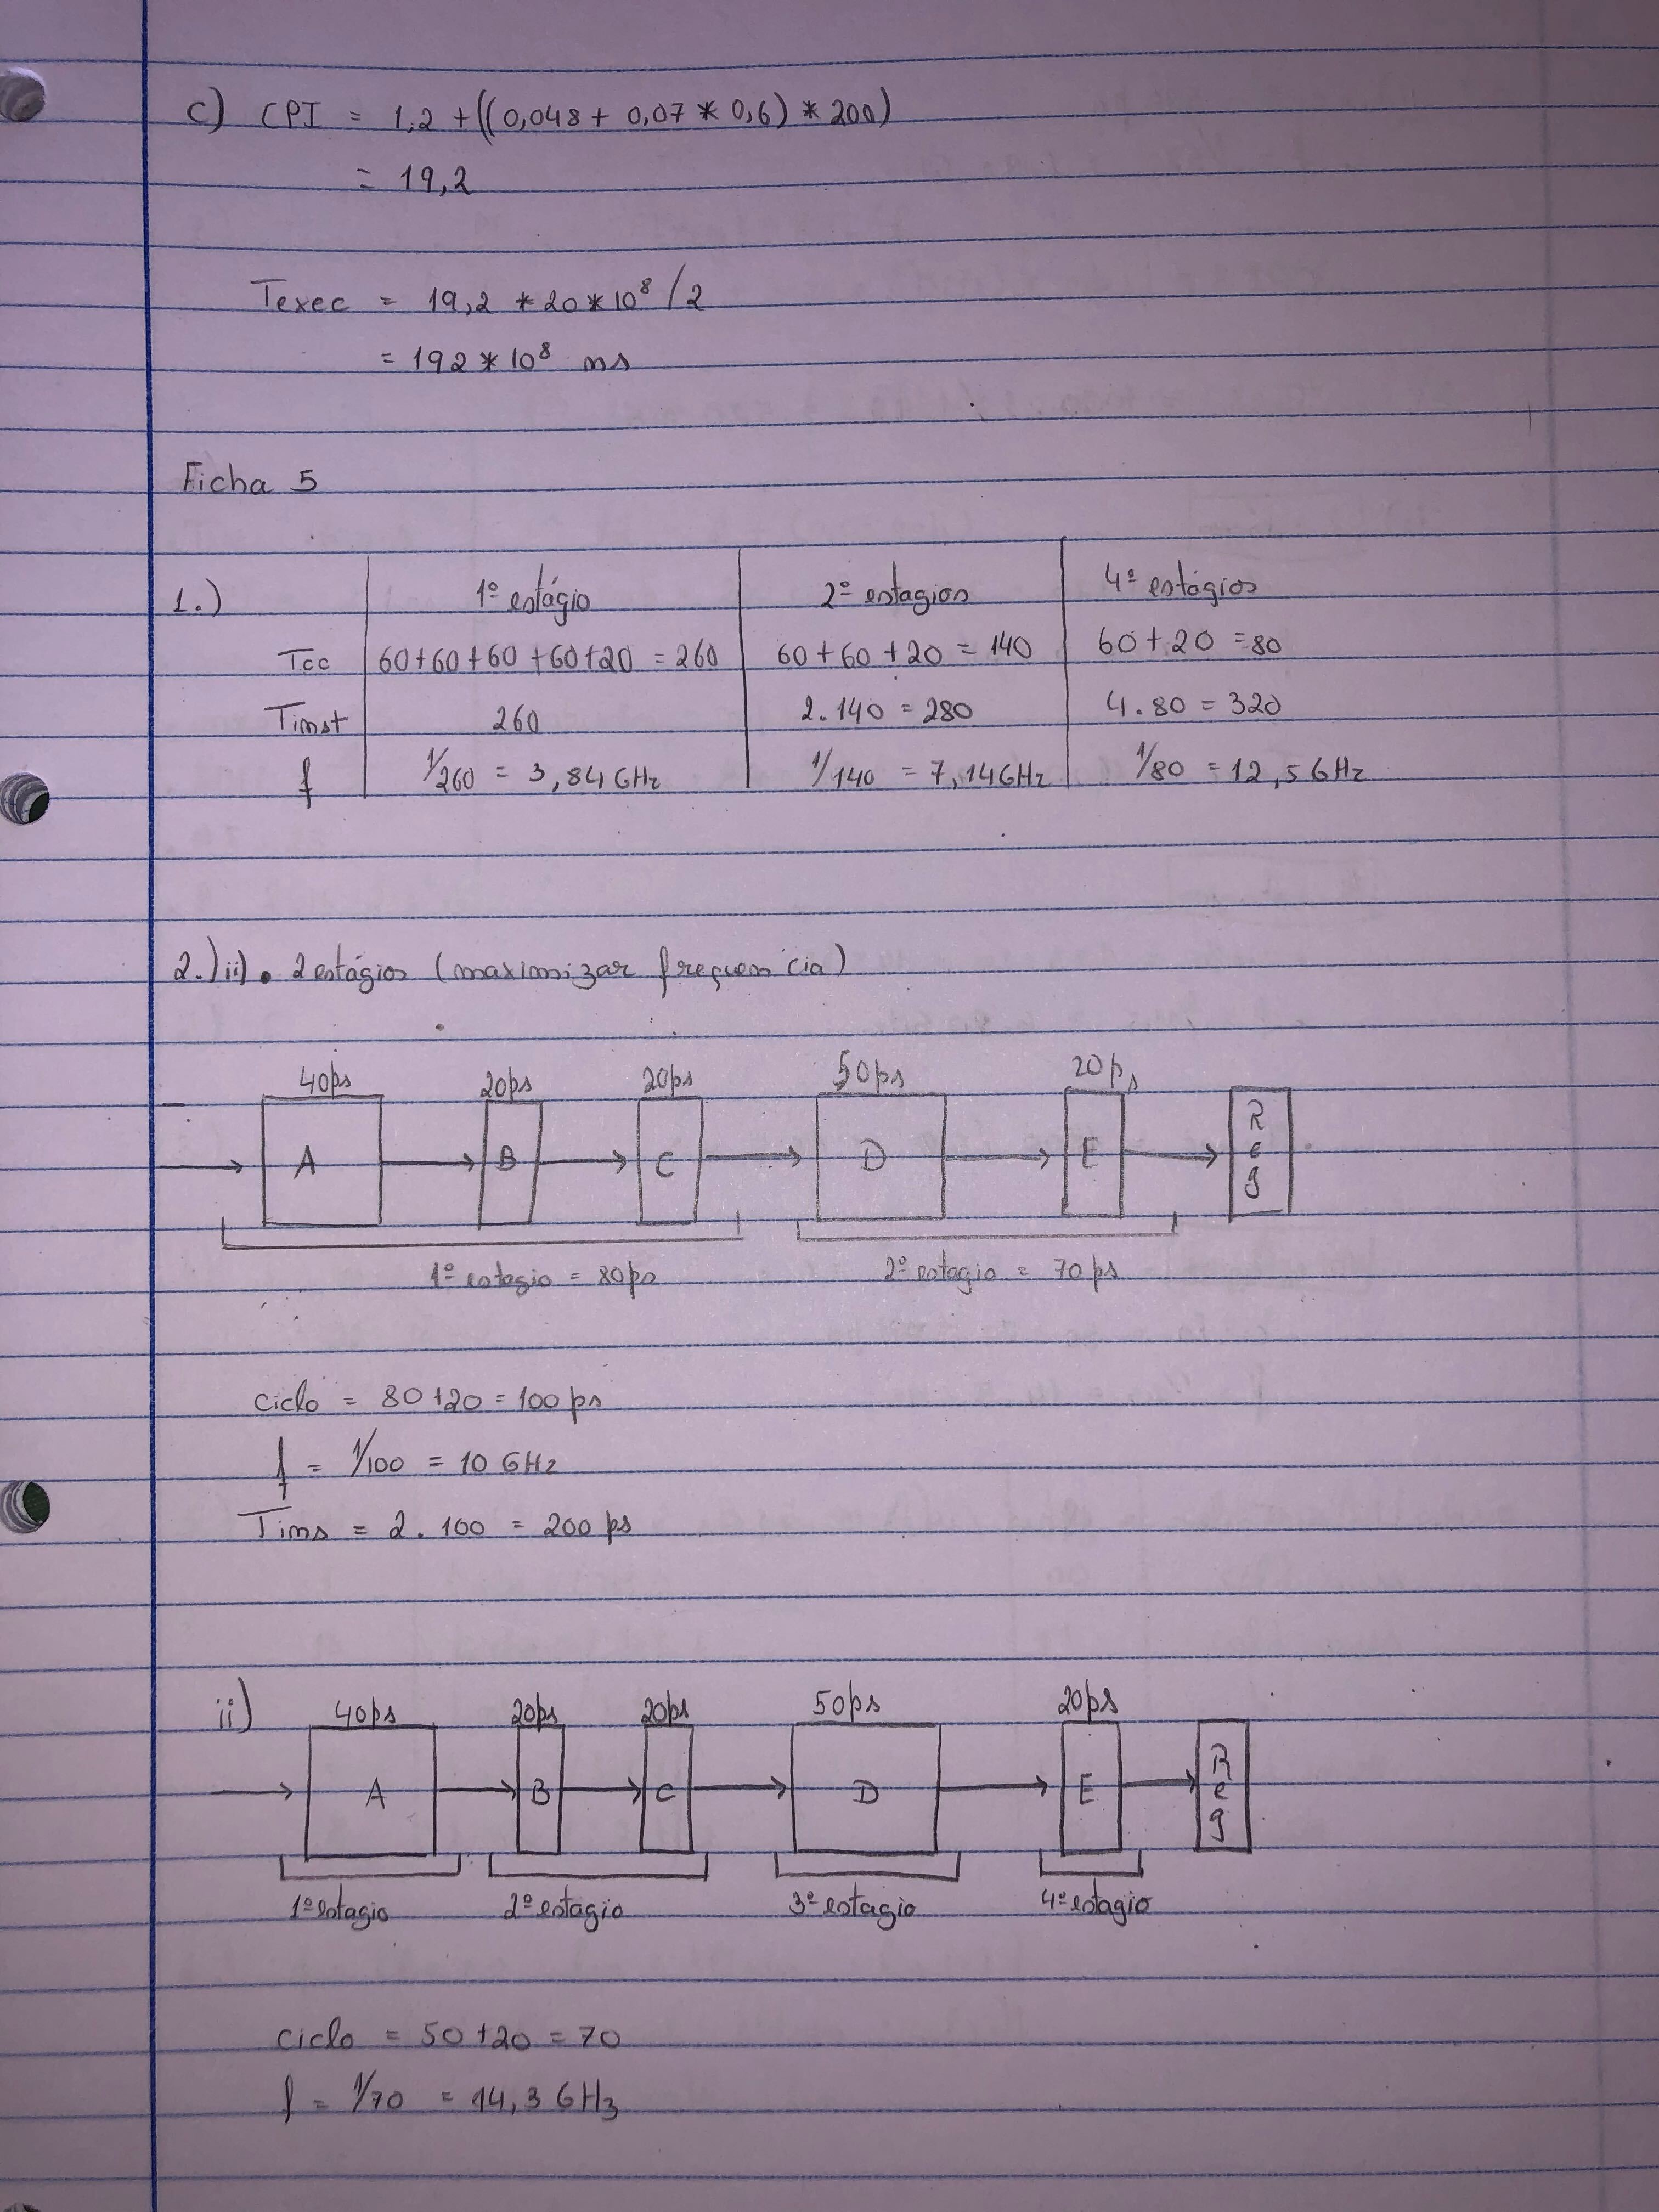 c) CPI = 1,2 + ((0,048 + 0,07 * 0,6) * 200)
= 19,2
Texec = 19,2 * 20 * 10⁸ / 2
= 192 * 10⁸ ns
Ficha 5
1.) 1º estágio 2º estagios 4º estágios
Tcc 60+60+60+60+20 = 260 60+60+20 = 140 60+20 = 80
Tinst 260 2.140 = 280 4.80 = 320
f 1/260 = 3,84 GHz 1/140 = 7,14 GHz 1/80 = 12,5 GHz
2.) ii) • 2 estágios (maximizar frequencia)
40ps 20ps 20ps 50ps 20ps
A B C D E Reg
1º estagio = 80ps 2º estagio = 70ps
ciclo = 80+20 = 100ps
f = 1/100 = 10 GHz
Tins = 2.100 = 200 ps
ii) 40ps 20ps 20ps 50ps 20ps
A B C D E Reg
1º estagio 2º estagio 3º estagio 4º estagio
ciclo = 50+20 = 70
f = 1/70 = 14,3 GHz